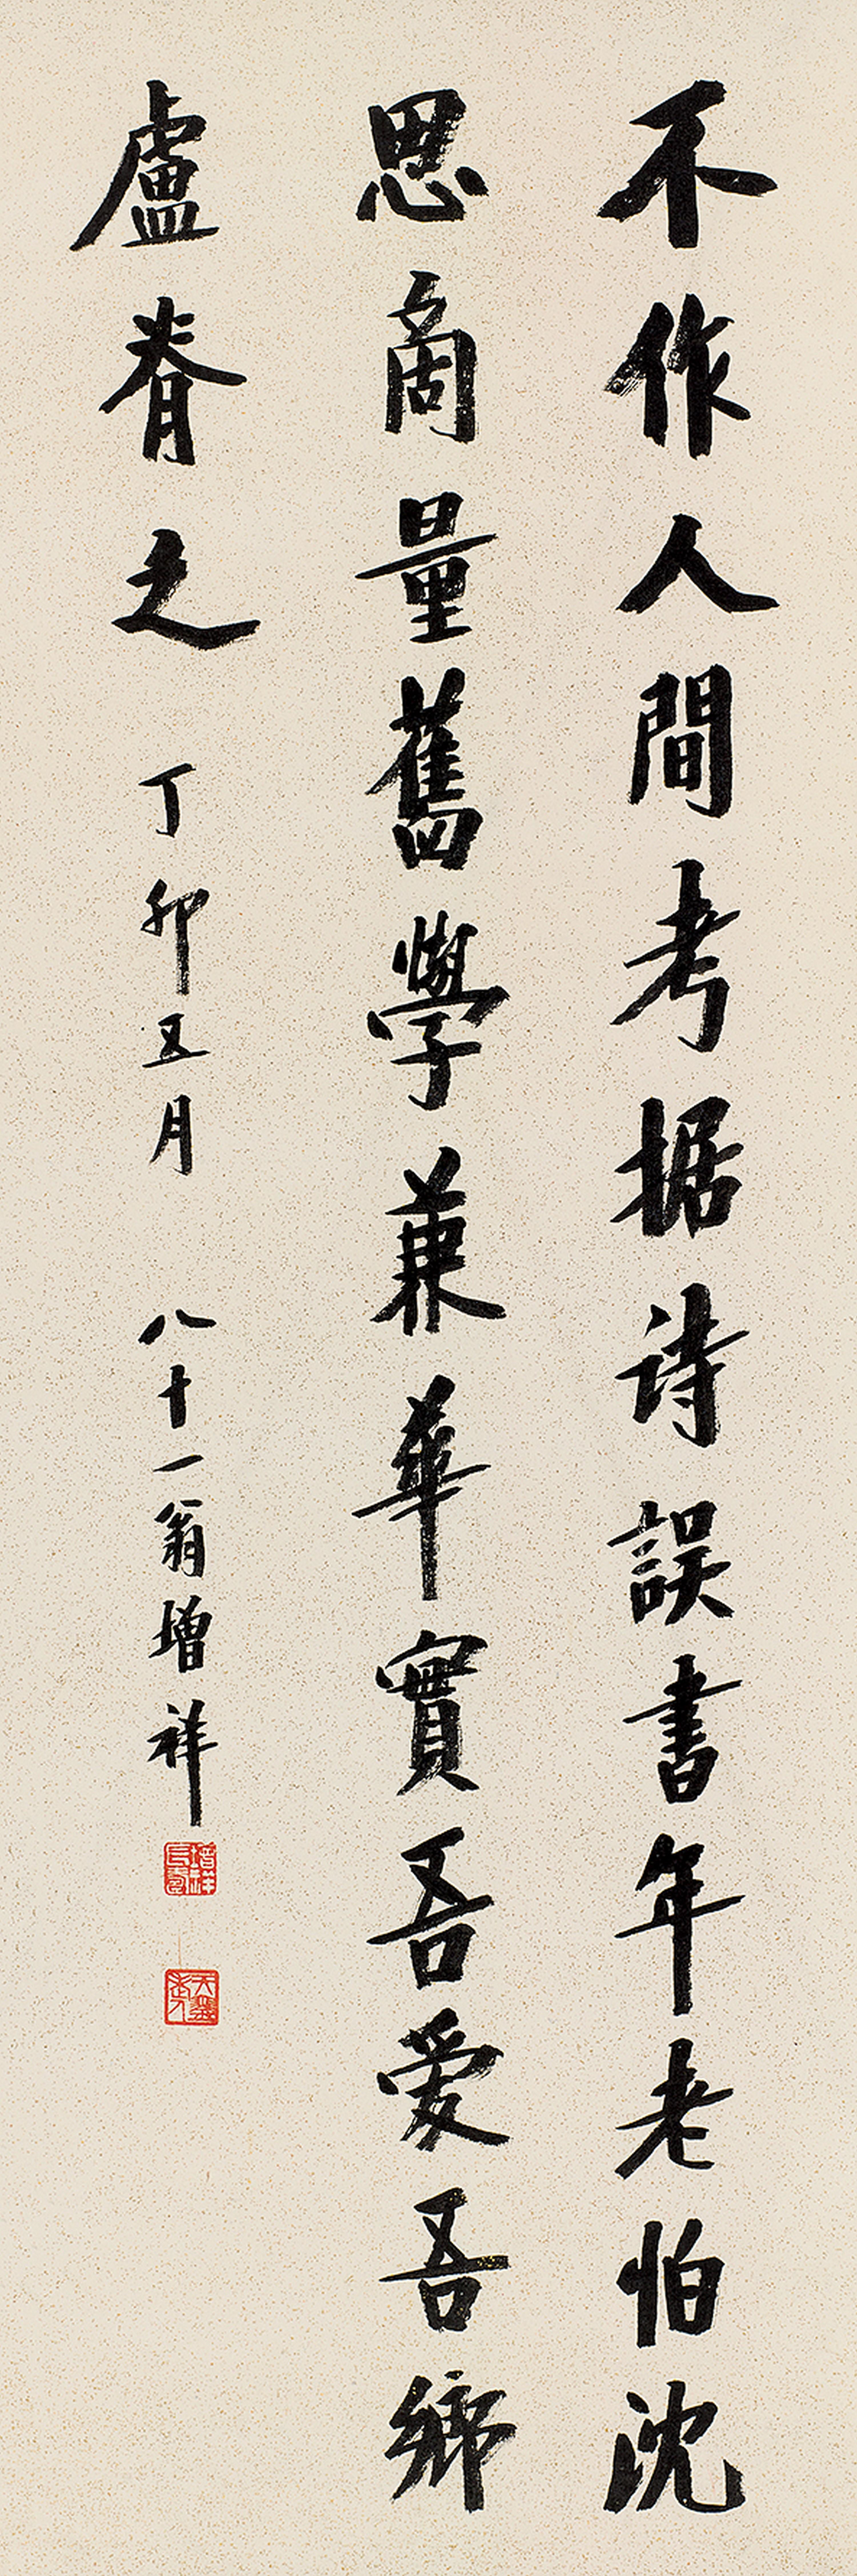 不作人間考据詩誤書年老怕沈
思商量舊學兼華實吾愛吾鄉
盧眘之 丁卯五月 八十一翁增祥